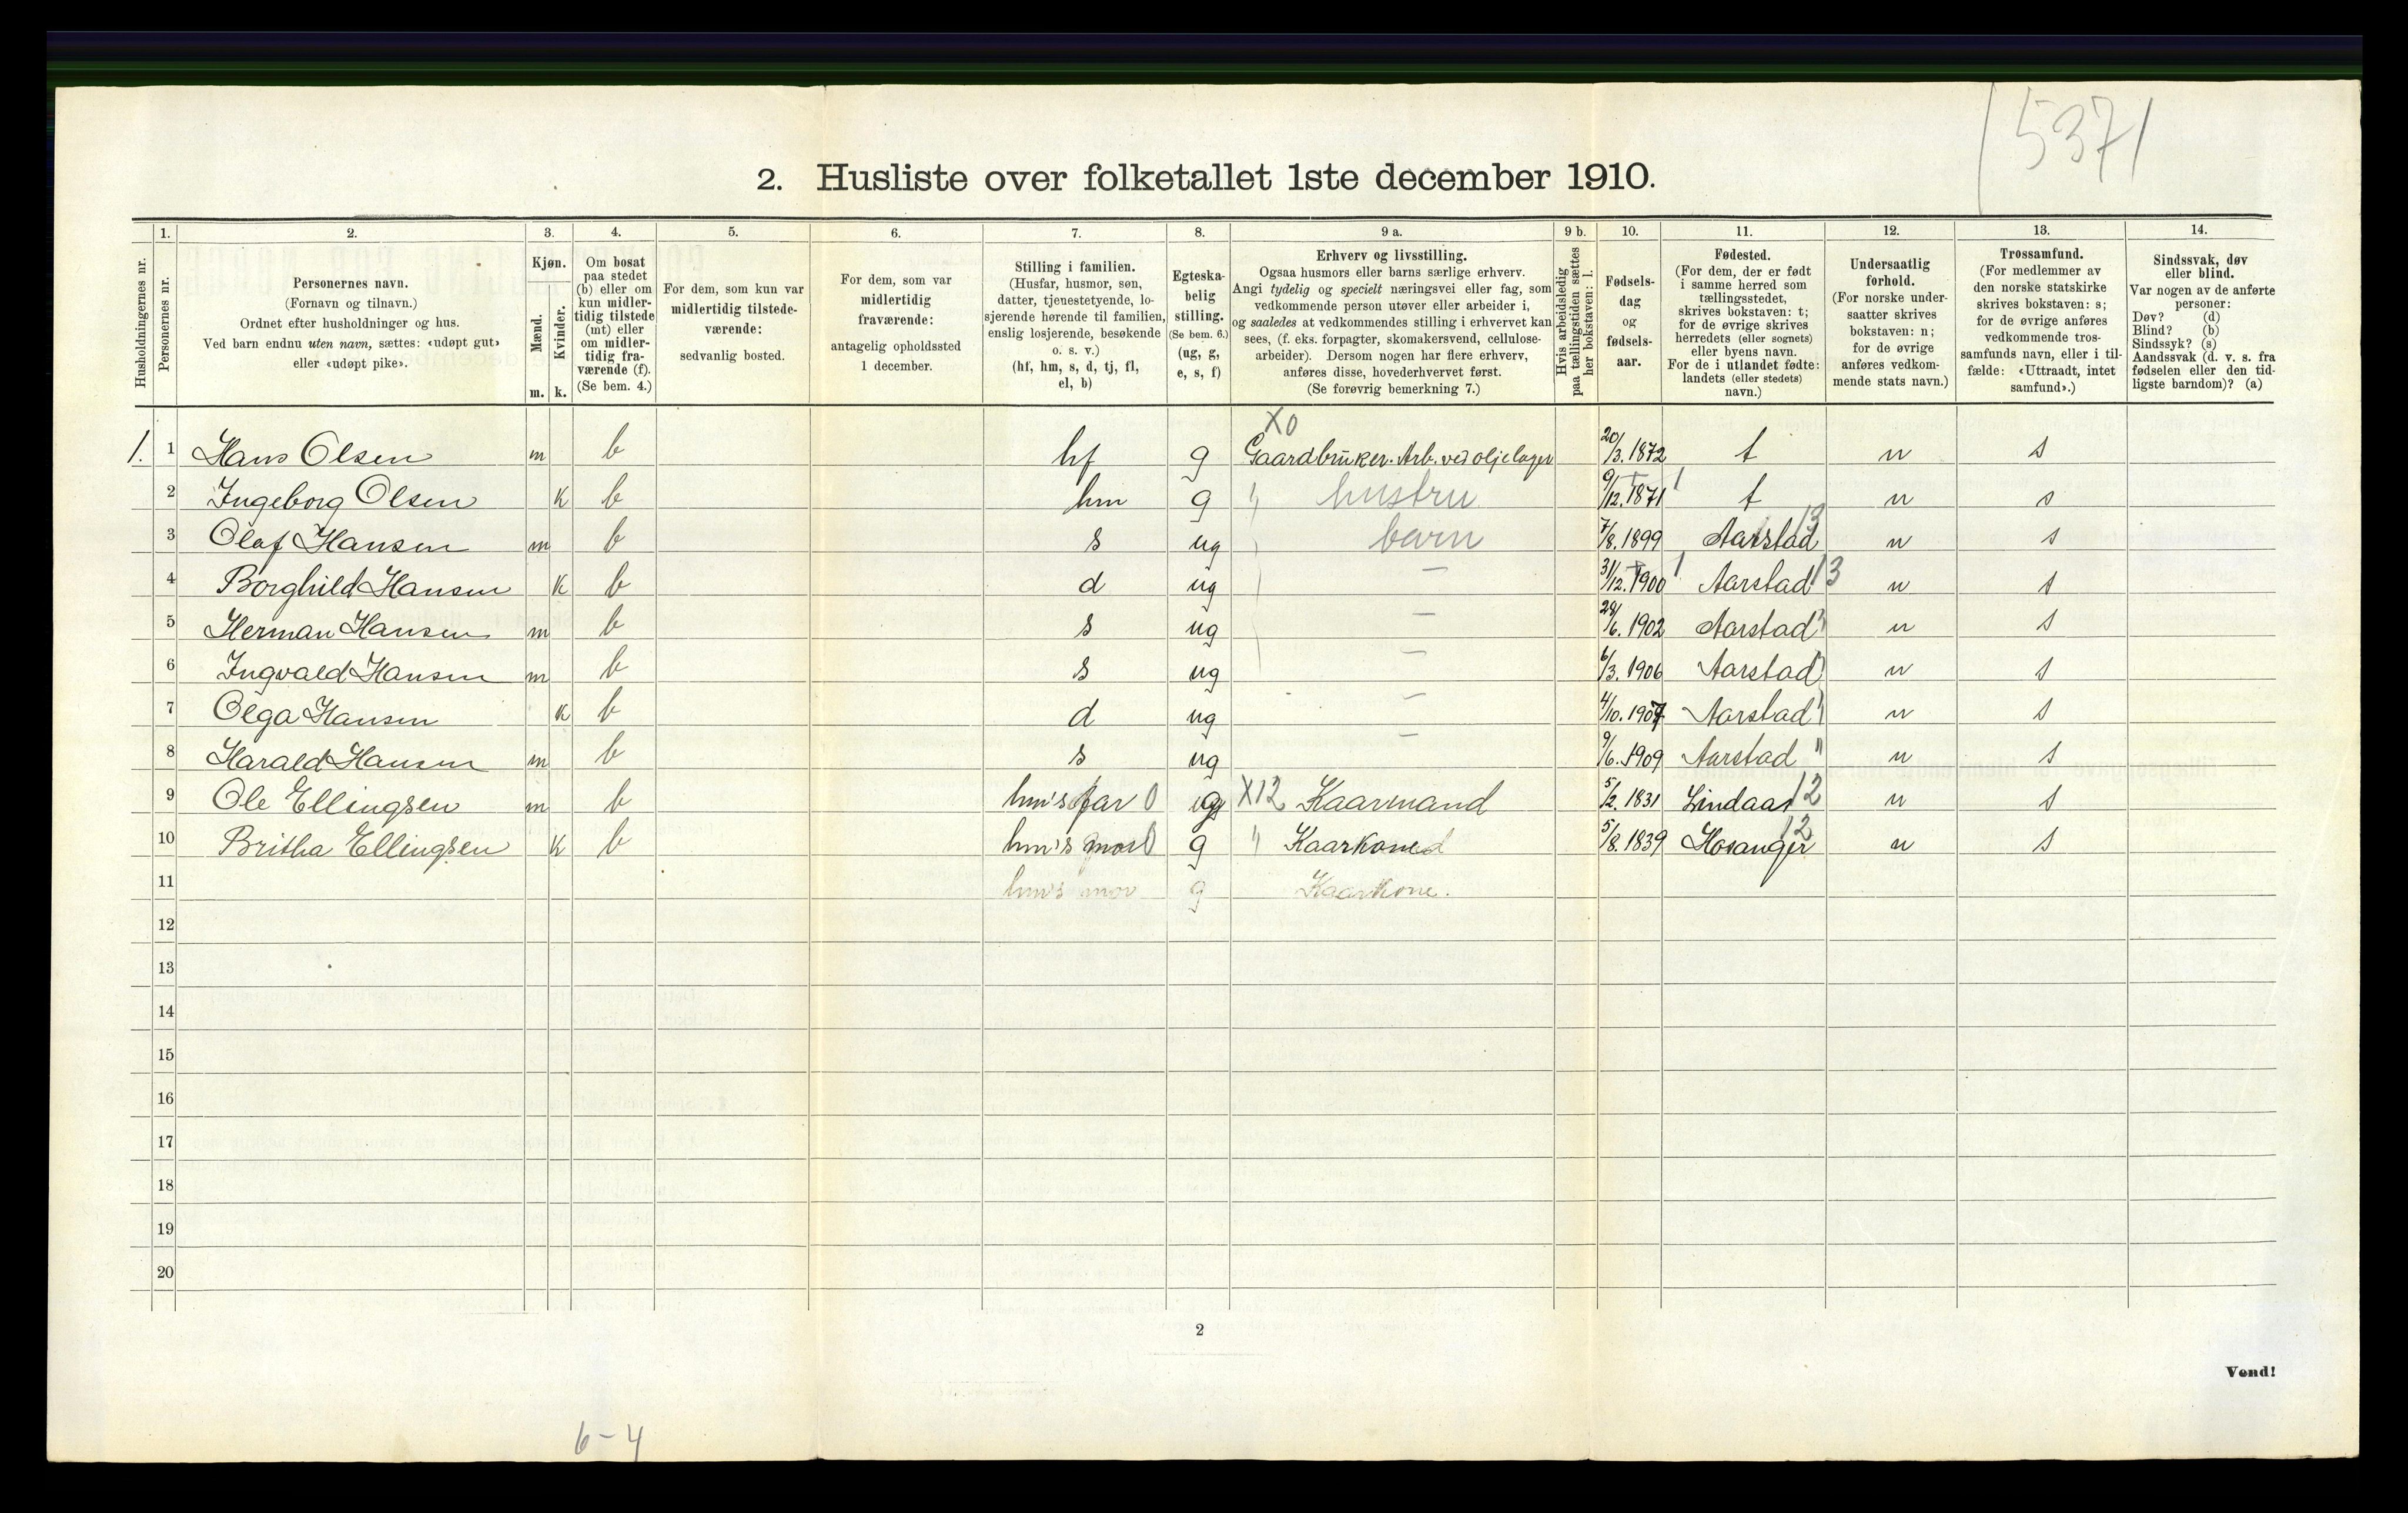 5371
2. Husliste over folketallet 1ste december 1910.
Husholdningernes nr.
1. Personernes nr.
2. Personernes navn. (Fornavn og tilnavn.) Ordnet efter husholdninger og hus. Ved barn endnu uten navn, sættes: «udøpt gut» eller «udøpt pike».
3. Kjøn. Mænd. m. Kvinder. k.
4. Om bosat paa stedet (b) eller om kun midlertidig tilstede (mt) eller om midlertidig fraværende (f). (Se bem. 4.)
5. For dem, som kun var midlertidig tilstedeværende: sedvanlig bosted.
6. For dem, som var midlertidig fraværende: antagelig opholdssted 1 december.
7. Stilling i familien. (Husfar, husmor, søn, datter, tjenestetyende, losjerende hørende til familien, enslig losjerende, besøkende o. s. v.) (hf, hm, s, d, tj, fl, el, b)
8. Egteskabelig stilling. (Se bem. 6.) (ug, g, e, s, f)
9 a. Erhverv og livsstilling. Ogsaa husmors eller barns særlige erhverv. Angi tydelig og specielt næringsvei eller fag, som vedkommende person utøver eller arbeider i, og saaledes at vedkommendes stilling i erhvervet kan sees, (f. eks. forpagter, skomakersvend, cellulosearbeider). Dersom nogen har flere erhverv, anføres disse, hovederhvervet først. (Se forøvrig bemerkning 7.)
9 b. Hvis arbeidsledig paa tællingstiden sættes her bokstaven: l.
10. Fødselsdag og fødselsaar.
11. Fødested. (For dem, der er født i samme herred som tællingsstedet, skrives bokstaven: t; for de øvrige skrives herredets (eller sognets) eller byens navn. For de i utlandet fødte: landets (eller stedets) navn.)
12. Undersaatlig forhold. (For norske undersaatter skrives bokstaven: n; for de øvrige anføres vedkommende stats navn.)
13. Trossamfund. (For medlemmer av den norske statskirke skrives bokstaven: s; for de øvrige anføres vedkommende trossamfunds navn, eller i tilfælde: «Uttraadt, intet samfund».)
14. Sindssvak, døv eller blind. Var nogen av de anførte personer: Døv? (d) Blind? (b) Sindssyk? (s) Aandssvak (d. v. s. fra fødselen eller den tidligste barndom)? (a)
X0
1. 1 Hans Olsen m b hf g Gaardbruker. Arb. ved oljelager 20/3.1872 t n s
2 Ingeborg Olsen k b hm g " hustru 9/12.1871 t n s
3 Olaf Hansen m b s ug barn 7/8.1899 Aarstad 13 n s
4 Borghild Hansen k b d ug — 31/12.1900 Aarstad 13 n s
5 Herman Hansen m b s ug — 28/6.1902 Aarstad " n s
6 Ingvald Hansen m b s ug — 6/3.1906 Aarstad " n s
7 Olga Hansen k b d ug — 4/10.1907 Aarstad " n s
8 Harald Hansen m b s ug — 9/6.1909 Aarstad " n s
9 Ole Ellingsen m b hm's far 0 g X12 Kaarmand 5/2.1831 Lindaas 12 n s
10 Britha Ellingsen k b hm's mor 0 g " Kaarkone 5/8.1839 Hosanger 12 n s
11 hm's mor g Kaarkone.
12
13
14
15
16
17
18
19
20
2
Vend!
6-4